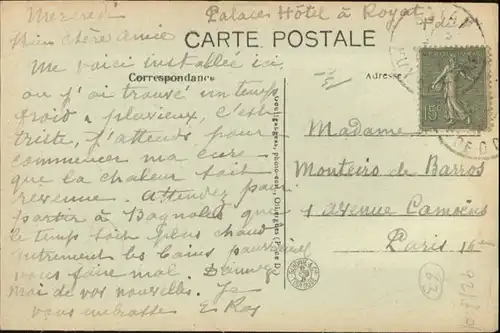 Mercredi
Palace Hôtel à Royat
P. de D.
Bien chère Amie
CARTE POSTALE
Correspondance
Adresse
15c
Me voici installée ici
où j'ai trouvé un temps
froid & pluvieux, c'est
triste, j'attends pour
commencer ma cure
que la chaleur soit
revenue. Attendez pour
partir à Bagnoles que
le temps soit plus chaud
autrement les bains pourraient
vous faire mal. Donnez
moi de vos nouvelles. Je
vous embrasse E. Rey
Madame
Monteiro de Barros
1 avenue Camoëns
Paris 16e
63